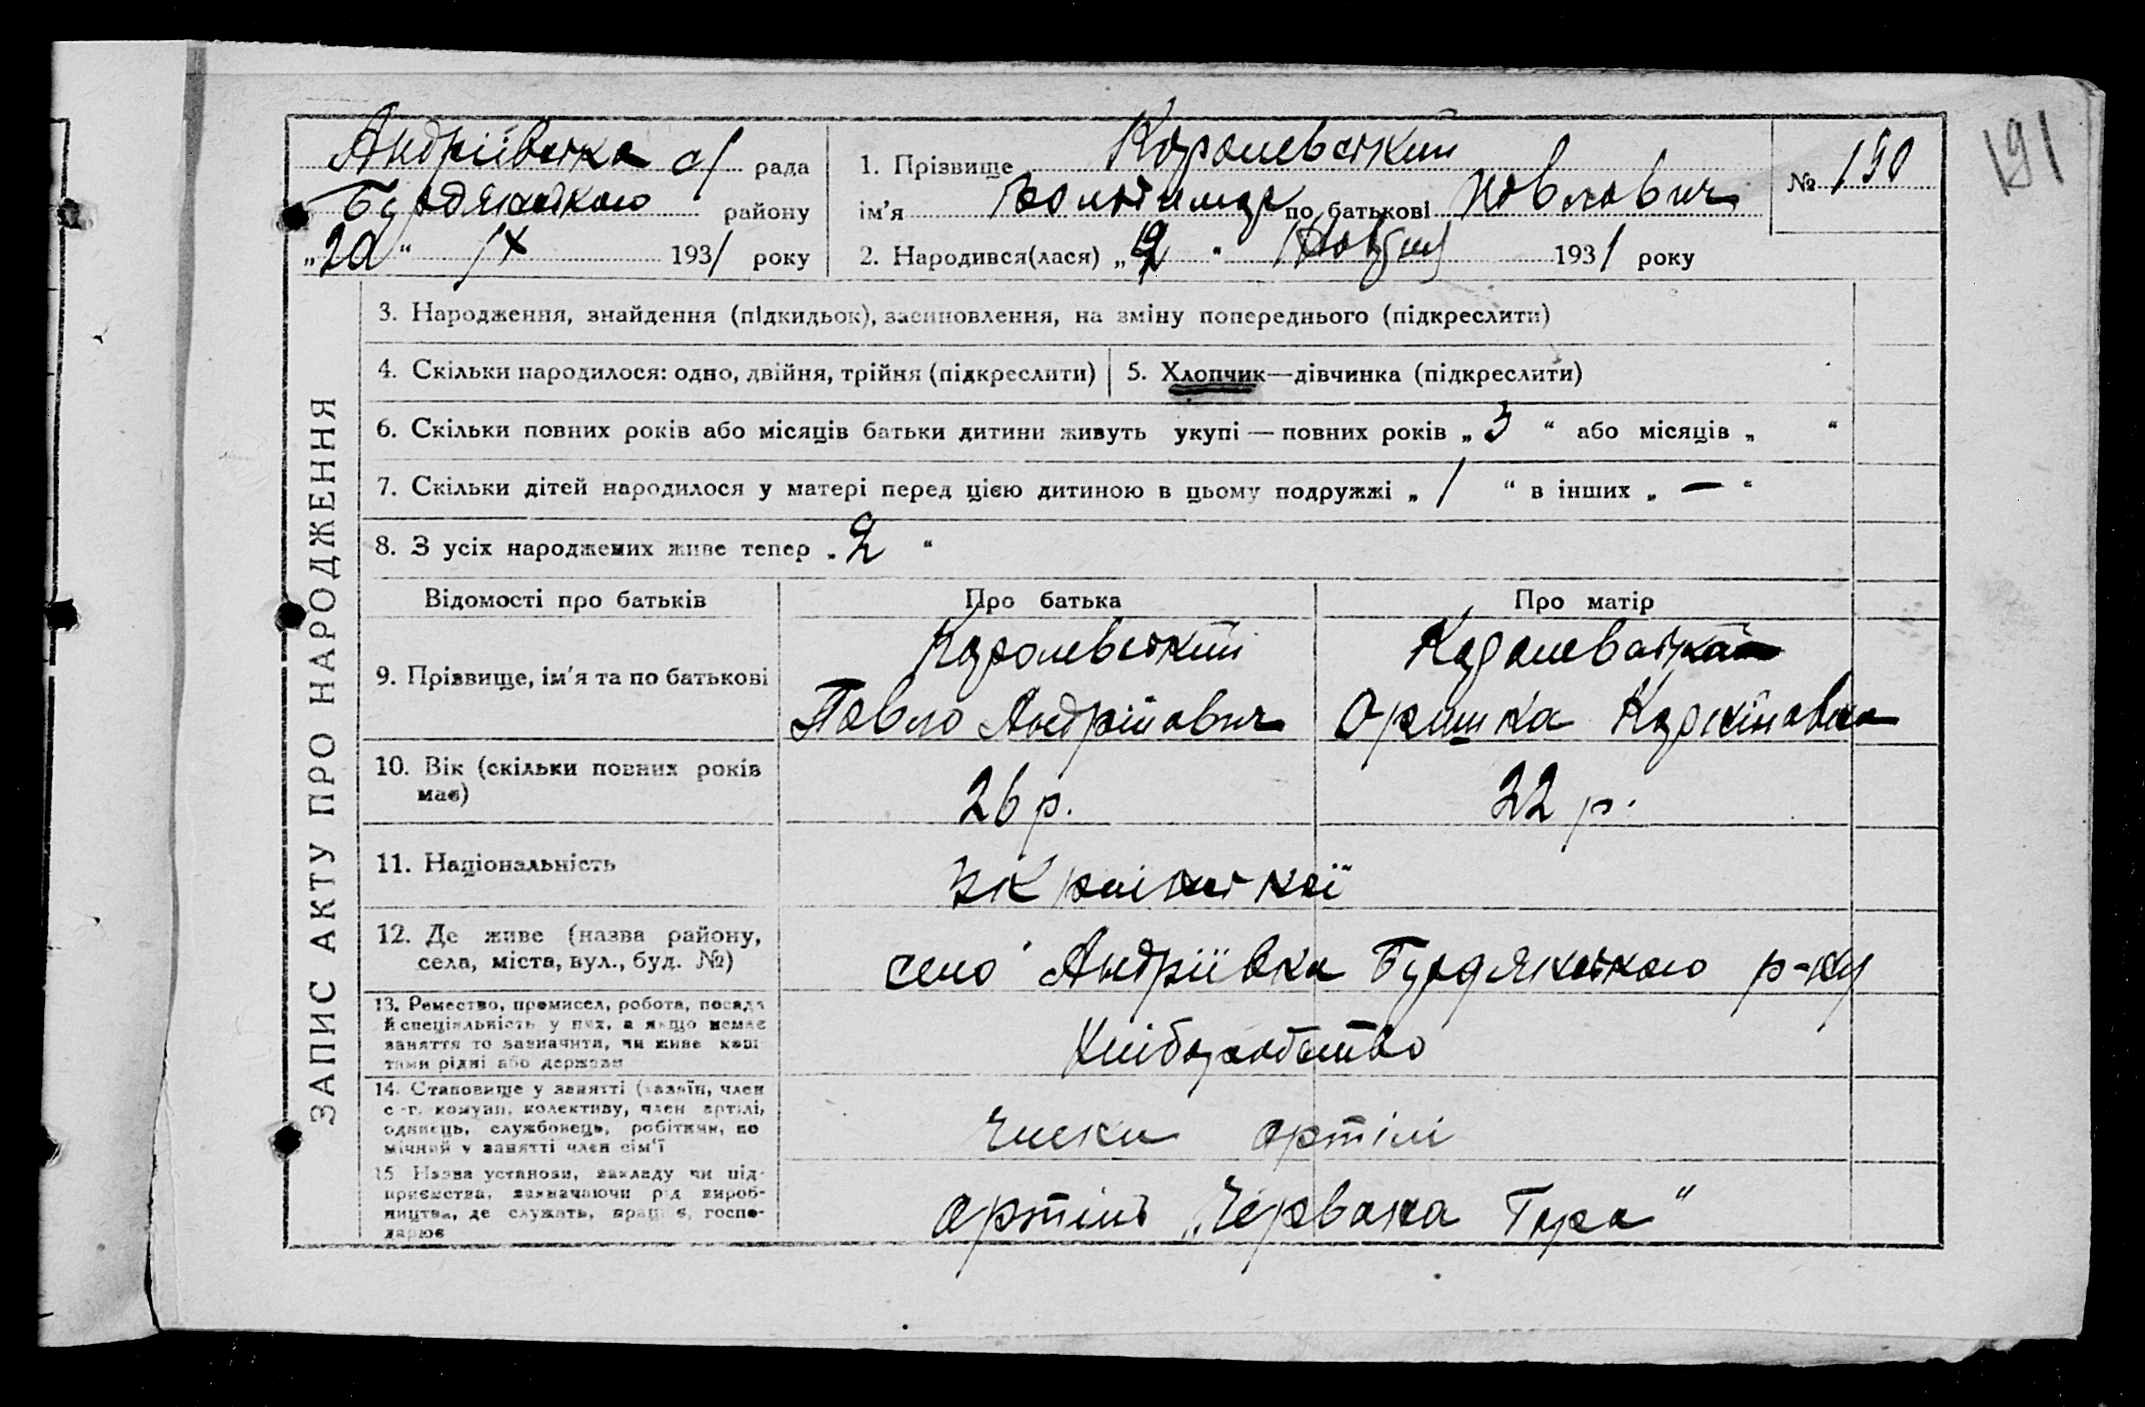 Андріївська с/ рада
Бердянського району
„20“ IX 1931 року
1. Прізвище Королевський
ім'я Володимир по батькові Павлович
2. Народився(лася) „ “ 1931 року
№ 190
191
ЗАПИС АКТУ ПРО НАРОДЖЕННЯ
3. Народження, знайдення (підкидьок), засиновлення, на зміну попереднього (підкреслити)
4. Скільки народилося: одно, двійня, трійня (підкреслити)
5. Хлопчик—дівчинка (підкреслити)
6. Скільки повних років або місяців батьки дитини живуть укупі — повних років „ 3 “ або місяців „ “
7. Скільки дітей народилося у матері перед цією дитиною в цьому подружжі „ 1 “ в інших „ — “
8. З усіх народжених живе тепер „ 2 “
Відомості про батьків
Про батька
Про матір
9. Прізвище, ім'я та по батькові
Королевський
Павло Андрійович
Королевська
Оришка
10. Вік (скільки повних років
має)
26 р.
22 р.
11. Національність
української
12. Де живе (назва району,
села, міста, вул., буд. №)
село Андріївка Бердянського р-ну
13. Ремество, промисел, робота, посада
й спеціяльність у них, а якщо немає
заняття то зазначити, чи живе кош
тами рідні або держави
Хліборобство
14. Становище у занятті (хазяїн, член
с-г. комуни, колективу, член артілі,
одинець, службовець, робітник, по
мічний у занятті член сім'ї
члени артілі
15 Назва установи, закладу чи під-
приємства, зазначаючи рід вироб-
ництва, де служить, працює, госпо-
дарює
артіль „Червона Гора“